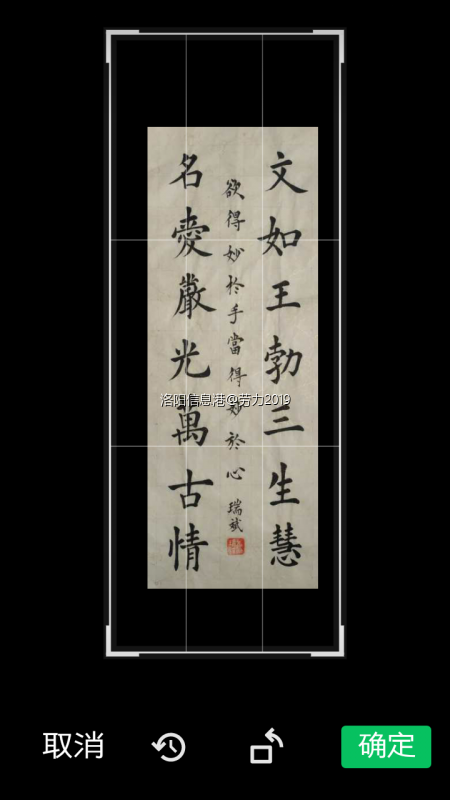 文如王勃三生慧
欲得妙於手當得妙於心 瑞斌
名愛嚴光萬古情
洛阳信息港@劳力2019
取消
确定